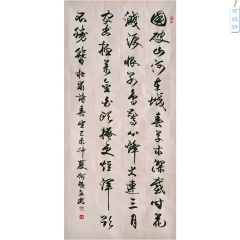 國破山河在城春草木深感時花
濺淚恨別鳥驚心烽火連三月
家書抵萬金白頭搔更短渾欲
不勝簪 杜甫詩春望 乙未仲夏 何